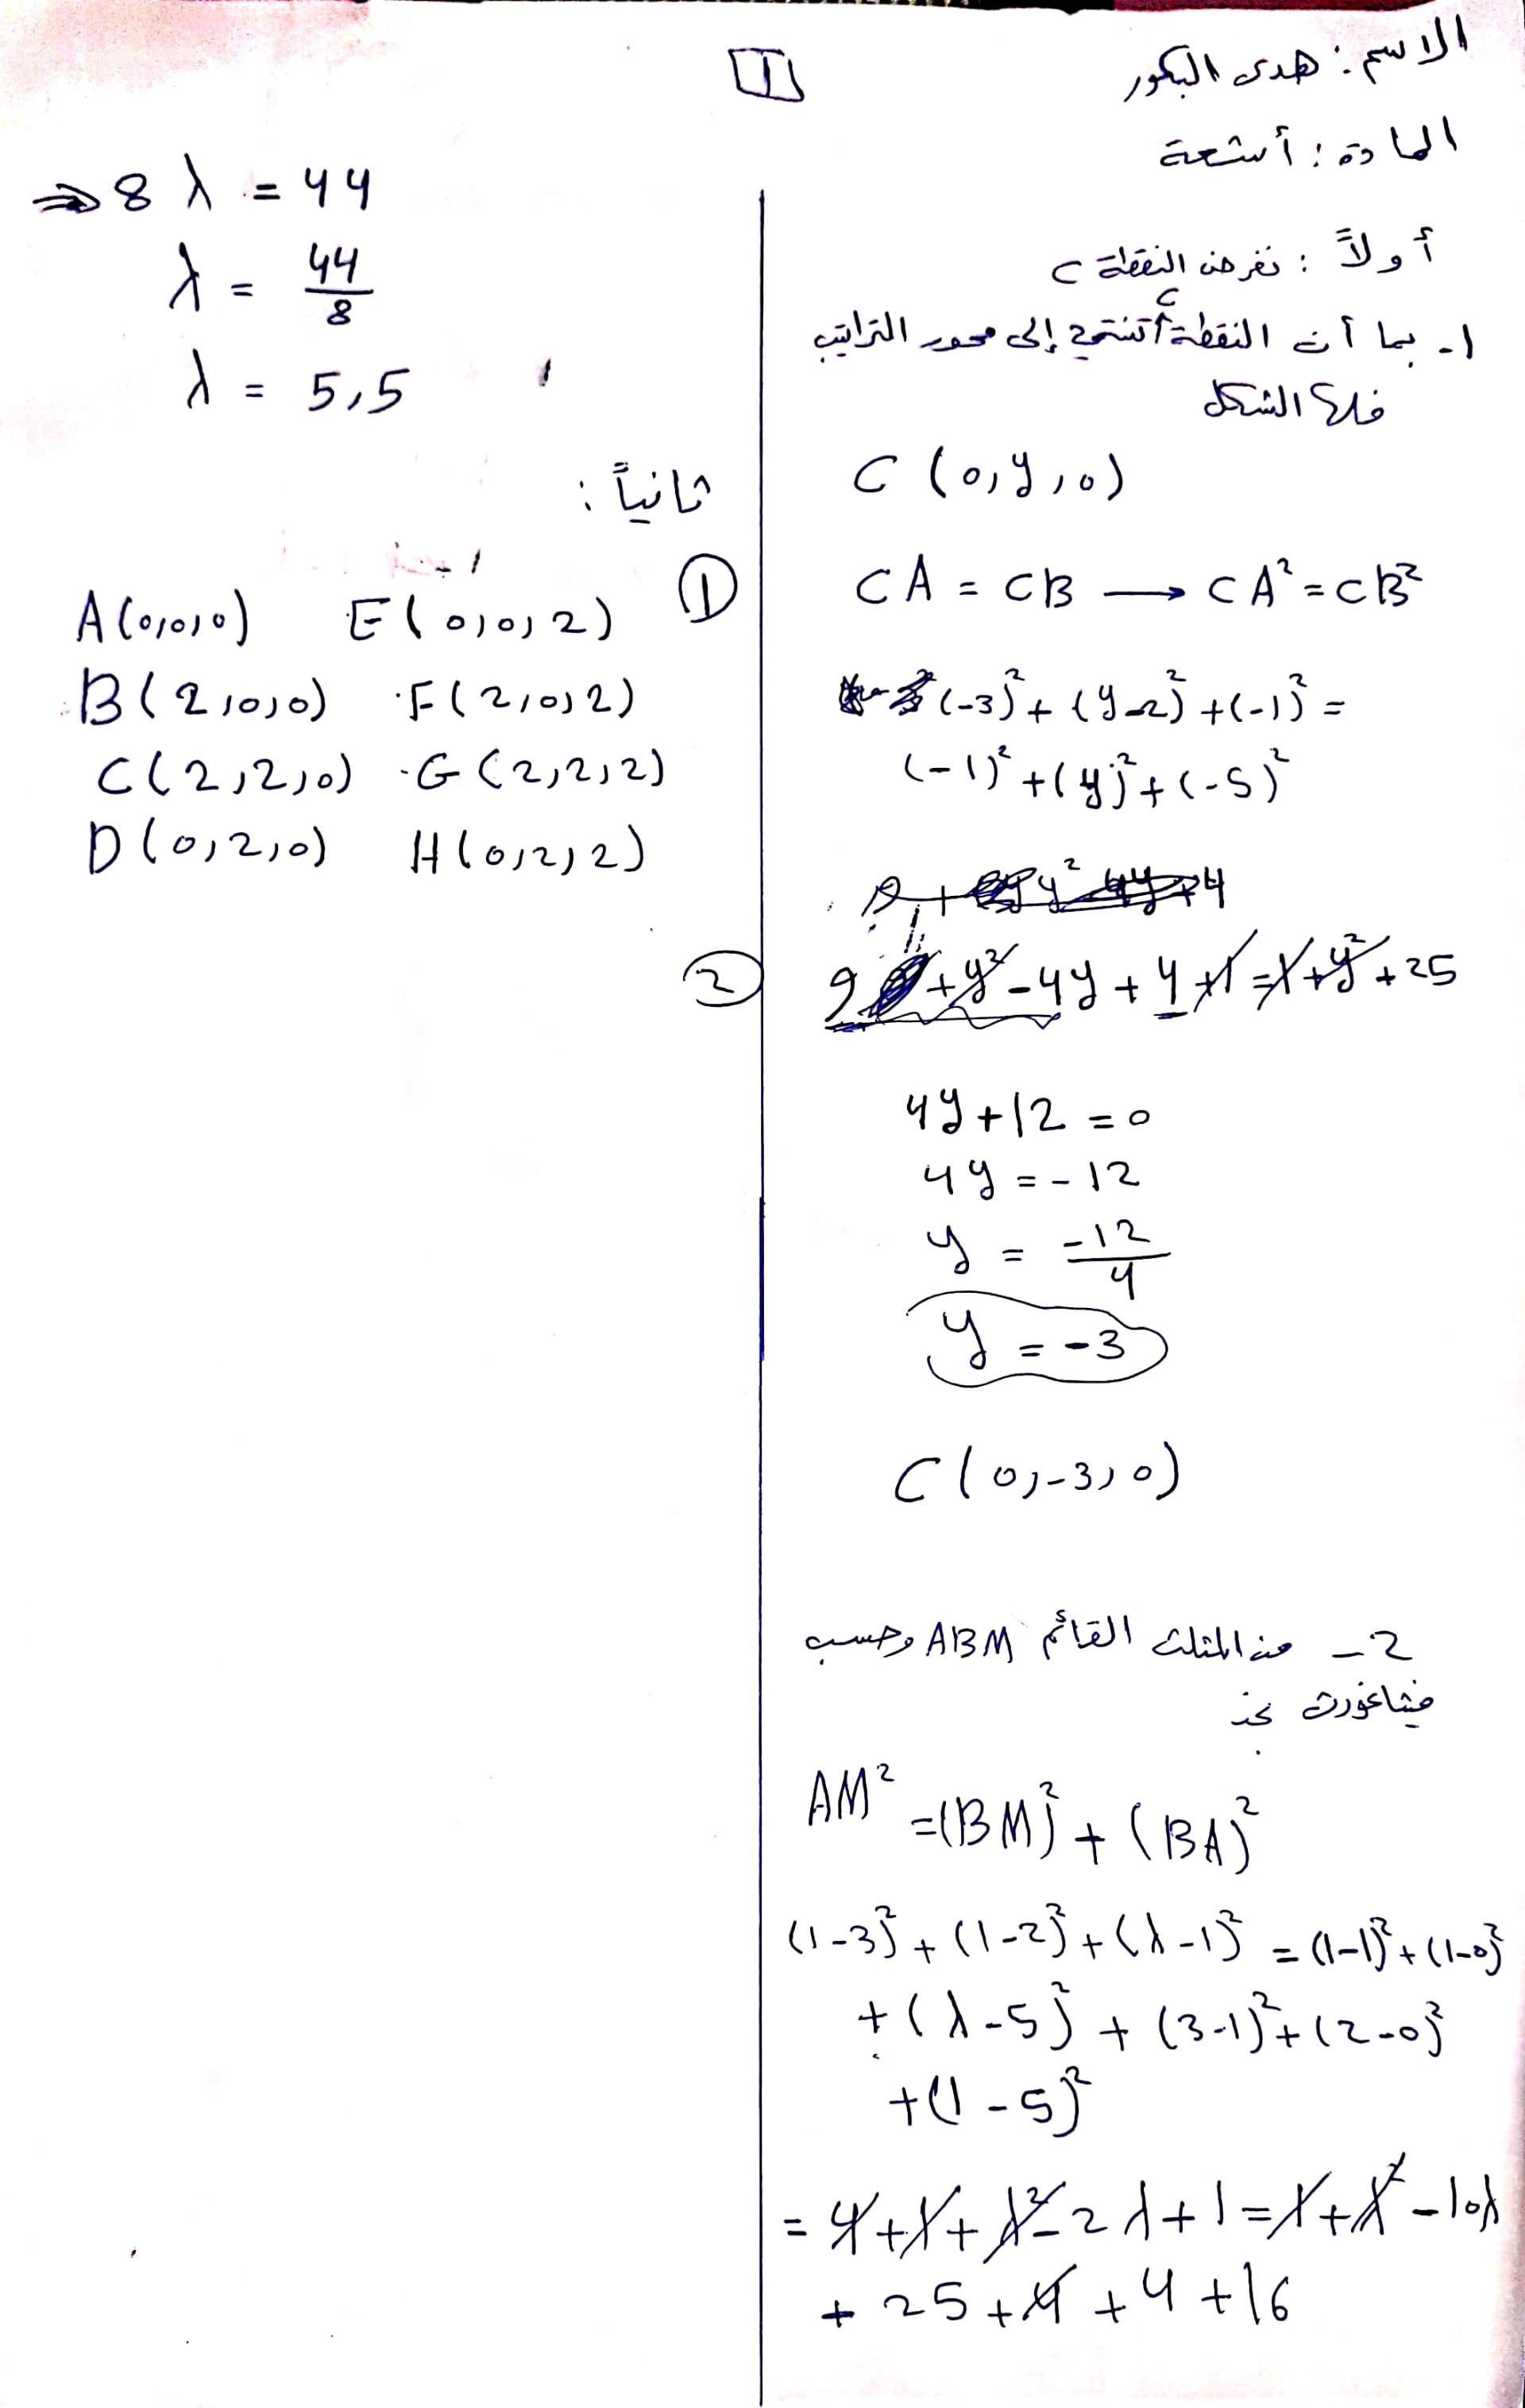 الاسم : هدى البكور
1
المادة : أشعة
أولاً : نفرض النقطة C
1- بما أن النقطة C تنتمي إلى محور التراتيب
فلها الشكل
C (0,y,0)
CA = CB → CA² = CB²
(-3)² + (y-2)² + (-1)² =
(-1)² + (y)² + (-5)²
9 + y² - 4y + 4 + 1 = 1 + y² + 25
4y + 12 = 0
4y = -12
y = -12/4
y = -3
C (0,-3,0)
2- من المثلث القائم ABM وحسب
فيثاغورث نجد
AM² = (BM)² + (BA)²
(1-3)² + (1-2)² + (λ-1)² = (1-1)² + (1-0)²
+ (λ-5)² + (3-1)² + (2-0)²
+ (1-5)²
= 4 + 1 + λ² - 2λ + 1 = 1 + λ² - 10λ
+ 25 + 4 + 4 + 16
⇒ 8λ = 44
λ = 44/8
λ = 5,5
ثانياً :
①
A(0,0,0) E(0,0,2)
B(2,0,0) F(2,0,2)
C(2,2,0) G(2,2,2)
D(0,2,0) H(0,2,2)
②